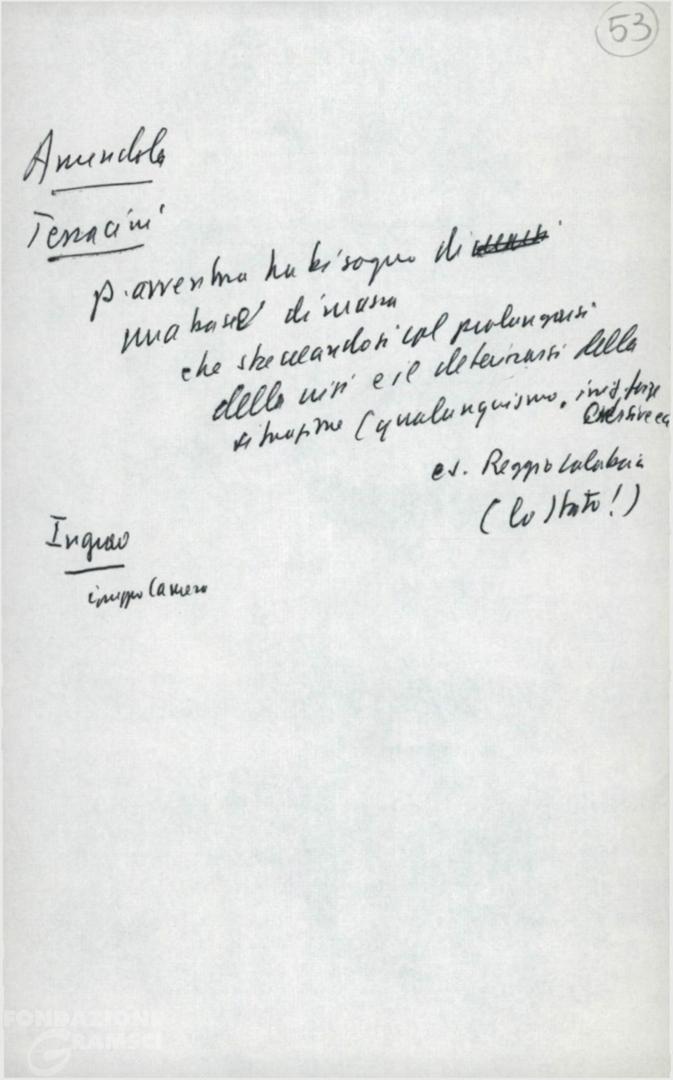 53
Amendola
Terracini
p. avventura ha bisogno di
una base di massa
che sta creandosi col prolungarsi
della crisi e il deteriorarsi della
situazione (qualunquismo,
es. Reggio Calabria
(lo Stato!)
Ingrao
gruppo Camera
FONDAZIONE
GRAMSCI